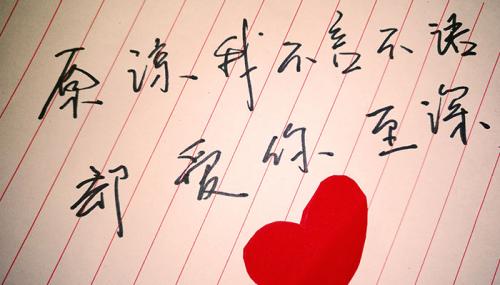 原谅我不言不语
却爱你至深